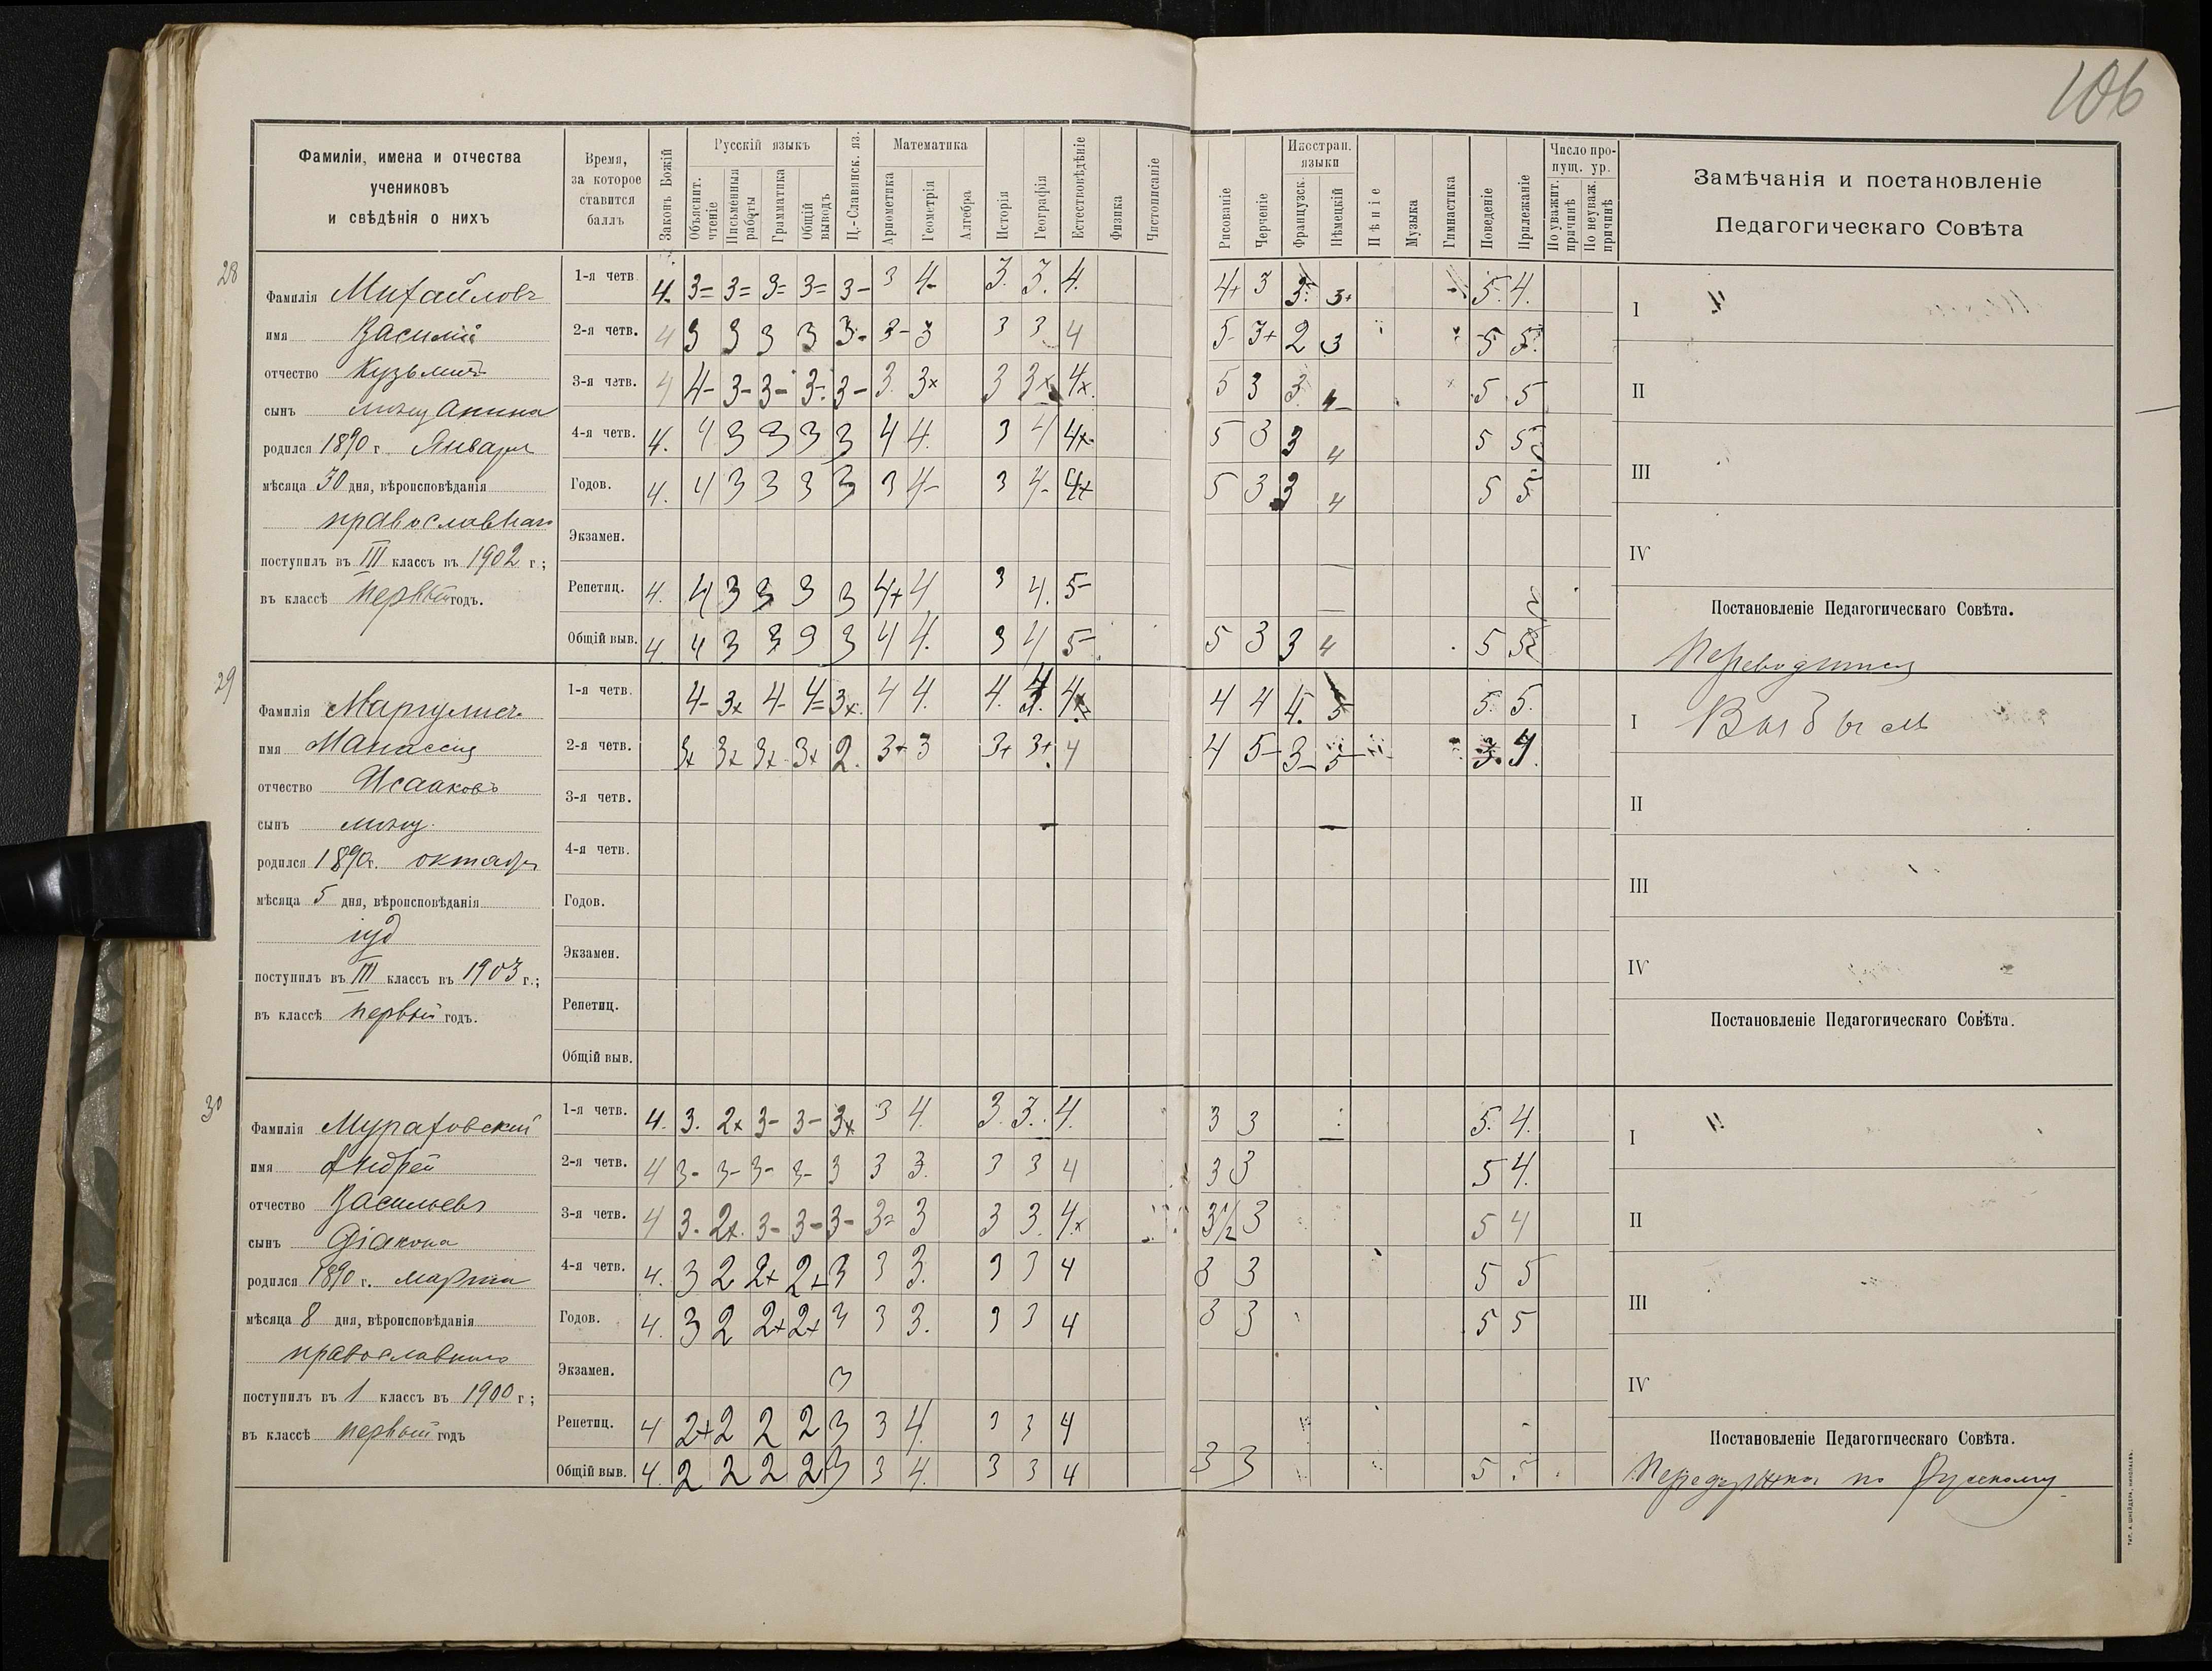 106
Фамиліи, имена и отчества
учениковъ
и свѣдѣнія о нихъ
Время,
за которое
ставится
баллъ
Законъ Божій
Русскій языкъ
Объяснит. чтеніе
Письменныя работы
Грамматика
Общій выводъ
Ц.-Славянск. яз.
Математика
Ариѳметика
Геометрія
Алгебра
Исторія
Географія
Естествовѣдѣніе
Физика
Чистописаніе
Рисованіе
Черченіе
Иностран. языки
Французск.
Нѣмецкій
Пѣніе
Музыка
Гимнастика
Поведеніе
Прилежаніе
Число пропущ. ур.
По уважит. причинѣ
По неуваж. причинѣ
Замѣчанія и постановленіе
Педагогическаго Совѣта
28
Фамилія Михайловъ
имя Василій
отчество Кузьмичъ
сынъ мѣщанина
родился 1890 г. Января
мѣсяца 30 дня, вѣроисповѣданія
православнаго
поступилъ въ III классъ въ 1902 г.;
въ классѣ первый годъ.
1-я четв. 4- 3= 3= 3= 3= 3- 3 4- 3. 3. 4. 4+ 3 3- 3+ 5. 4.
2-я четв. 4 3 3 3 3 3- 3- 3 3 3 4 5- 3+ 2 3 5 5.
3-я четв. 4 4- 3- 3- 3- 3- 3. 3x 3 3x 4x. 5 3 3. 4- 5 5
4-я четв. 4. 4 3 3 3 3 4 4. 3 4 4x 5 3 3 4 5 5
Годов. 4. 4 3 3 3 3 3 4- 3 4- 4x 5 3 3 4 5 5
Экзамен.
Репетиц. 4. 4 3 3 3 3 4+ 4 3 4. 5-
Общій выв. 4. 4 3 3 3 3 4 4. 3 4 5- 5 3 3 4 5 5
I
II
III
IV
Постановленіе Педагогическаго Совѣта.
Переводится
29
Фамилія Маргулисъ
имя Манассія
отчество Исааковъ
сынъ мѣщ.
родился 1890 г. октября
мѣсяца 5 дня, вѣроисповѣданія
іуд
поступилъ въ III классъ въ 1903 г.;
въ классѣ первый годъ.
1-я четв. 4- 3x 4- 4= 3x. 4 4. 4. 4. 4x 4 4 4. 5 5. 5.
2-я четв. 3x 3x 3x 3x 2. 3+ 3 3+ 3+. 4 4 5- 3- 5- 3. 4.
3-я четв.
4-я четв.
Годов.
Экзамен.
Репетиц.
Общій выв.
I Выбылъ
II
III
IV
Постановленіе Педагогическаго Совѣта.
30
Фамилія Мураховскій
имя Андрей
отчество Васильевъ
сынъ Діакона
родился 1890 г. марта
мѣсяца 8 дня, вѣроисповѣданія
православнаго
поступилъ въ 1 классъ въ 1900 г.;
въ классѣ первый годъ
1-я четв. 4. 3. 2x 3- 3- 3x 3 4. 3. 3. 4. 3 3 5. 4.
2-я четв. 4 3- 3- 3- 3- 3 3 3. 3 3 4 3 3 5 4.
3-я четв. 4 3. 2x. 3- 3- 3- 3= 3 3 3. 4x 3½ 3 5 4
4-я четв. 4. 3 2 2x 2+ 3 3 3. 3 3 4 3 3 5 5
Годов. 4. 3 2 2x 2x 3 3 3. 3 3 4 3 3 5 5
Экзамен. 3
Репетиц. 4 2+ 2 2 2 3 3 4 3 3 4
Общій выв. 4. 2 2 2 2 3 3 4. 3 3 4 3 3 5 5
I
II
III
IV
Постановленіе Педагогическаго Совѣта.
Передержка по Русскому
ТИП. А. ШНЕЙДЕРА, НИКОЛАЕВЪ.